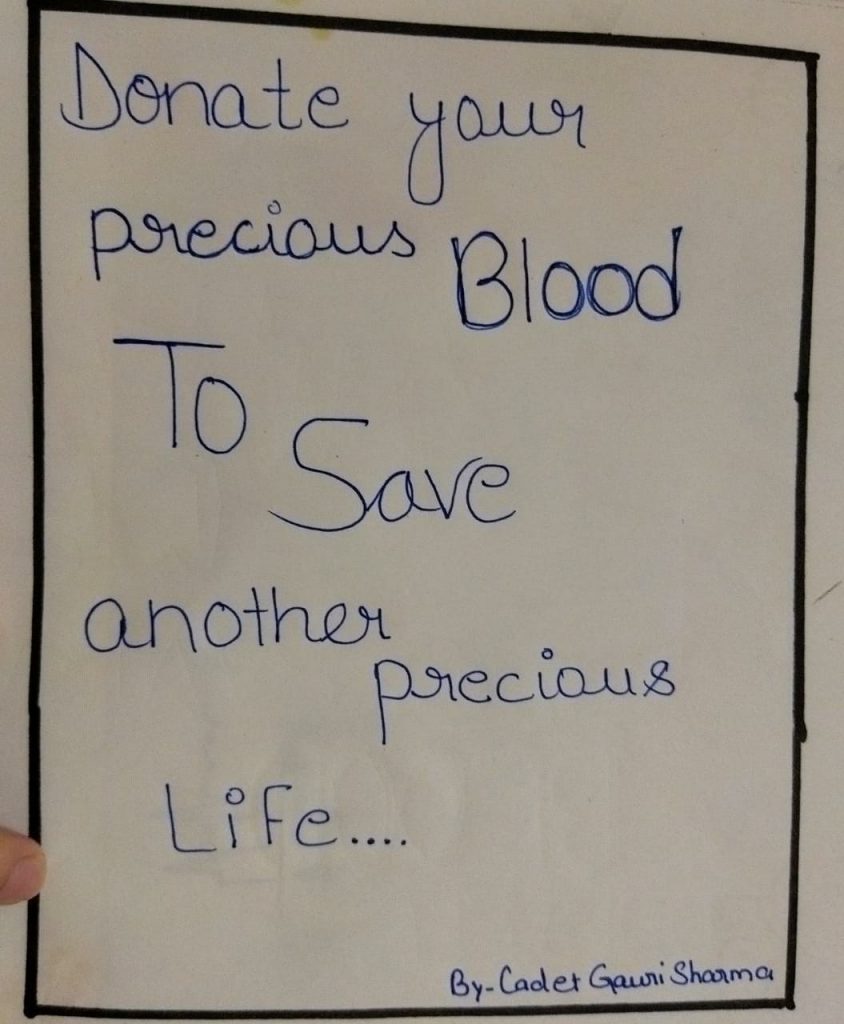 Donate your
precious Blood
To
Save
another
precious
Life....
By-Cadet Gauri Sharma